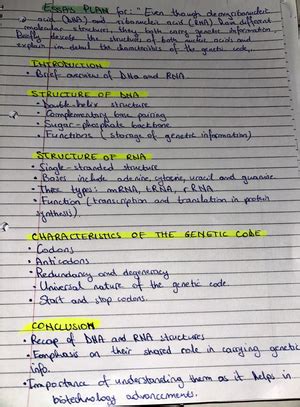 ESSAY PLAN for: "Even though deoxyribonucleic
acid (DNA) and ribonucleic acid (RNA) have different
molecular structures, they both carry genetic information.
Briefly describe the structure of both nucleic acids and
explain in detail the characteristics of the genetic code.
INTRODUCTION
• Brief overview of DNA and RNA
STRUCTURE OF DNA
• Double-helix structure
• Complementary base pairing
• Sugar-phosphate backbone
• Functions (storage of genetic information)
STRUCTURE OF RNA
• Single-stranded structure
• Bases include adenine, cytosine, uracil and guanine
• Three types: mRNA, tRNA, rRNA
• Function (transcription and translation in protein
synthesis)
CHARACTERISTICS OF THE GENETIC CODE
• Codons
• Anticodons
• Redundancy and degeneracy
• Universal nature of the genetic code
• Start and stop codons.
CONCLUSION
• Recap of DNA and RNA structures
• Emphasis on their shared role in carrying genetic
info.
• Importance of understanding them as it helps in
biotechnology advancements.